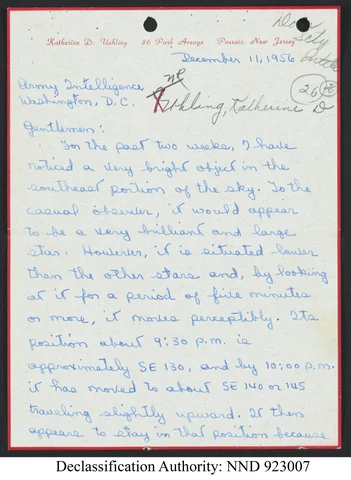 Katherine D. Uehling 86 Park Avenue Passaic, New Jersey
December 11, 1956
Army Intelligence,
Washington, D.C.
Uehling, Katherine D
26
Gentlemen:
For the past two weeks, I have
noticed a very bright object in the
southeast portion of the sky. To the
casual observer, it would appear
to be a very brilliant and large
star. However, it is situated lower
than the other stars and, by looking
at it for a period of five minutes
or more, it moves perceptibly. Its
position about 9:30 p.m. is
approximately SE 130, and by 10:00 p.m.
it has moved to about SE 140 or 145
traveling slightly upward. It then
appears to stay in that position because
Declassification Authority: NND 923007